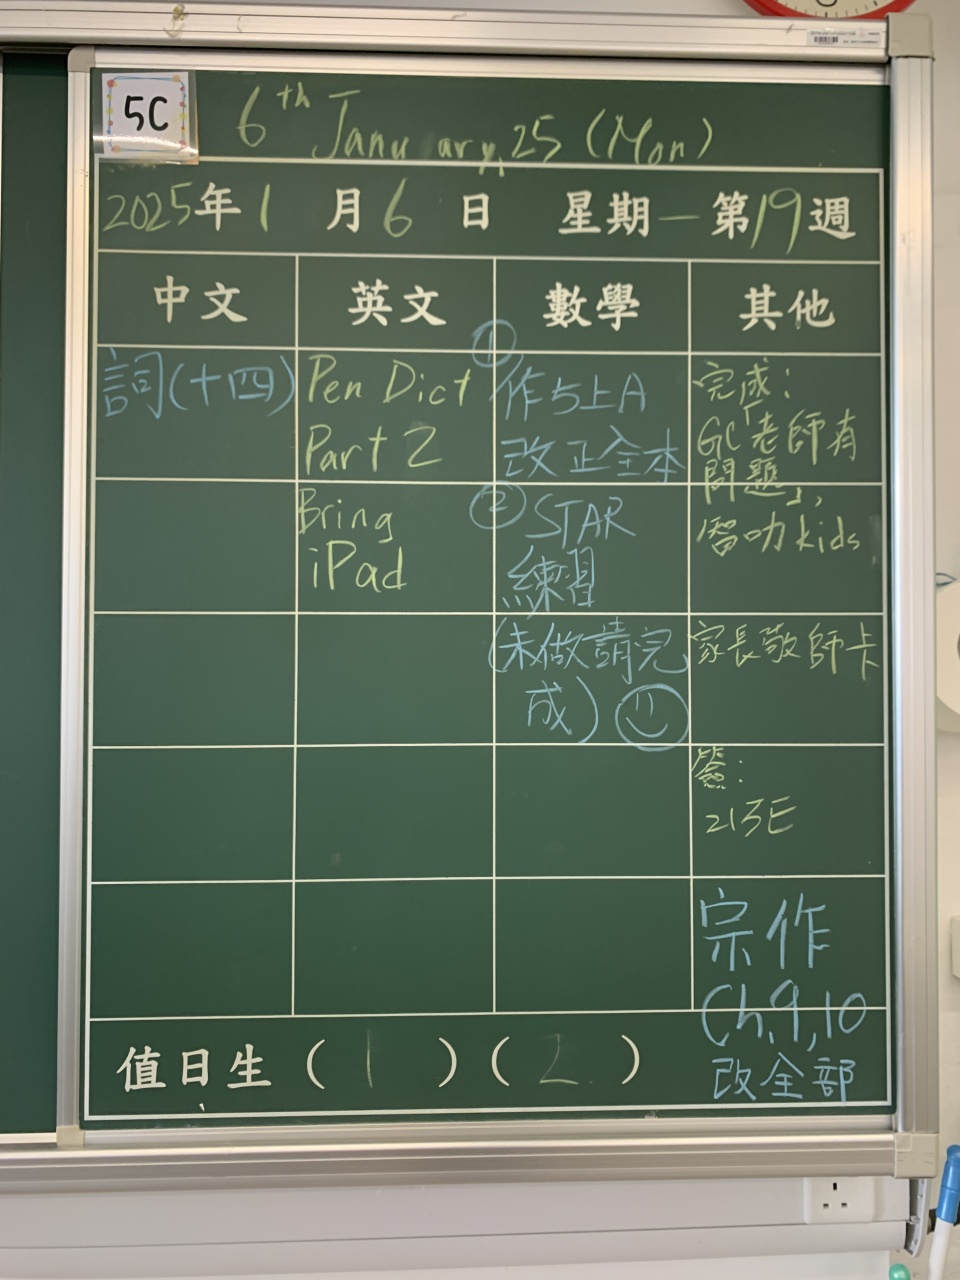 5C
6th January, 25 (Mon)
2025年1月6日 星期一 第19週
中文 英文 數學 其他
詞(十四)
Pen Dict
Part 2
Bring
iPad
① 作5上A
改正全本
② STAR
練習
(未做請完
成)
完成：
GC「老師有
問題」,
智叻kids
家長敬師卡
簽：
215E
宗作
Ch.9,10
改全部
值日生 ( 1 ) ( 2 )